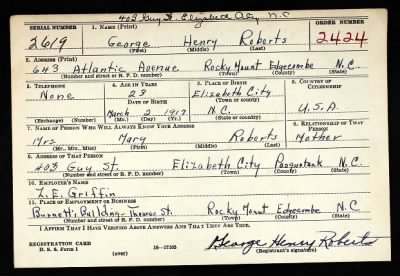 403 Guy St. Elizabeth City N.C
SERIAL NUMBER 1. NAME (Print) ORDER NUMBER
2619 George Henry Roberts 2424
(First) (Middle) (Last)
2. ADDRESS (Print)
643 Atlantic Avenue Rocky Mount Edgecombe N.C.
(Number and street or R. F. D. number) (Town) (County) (State)
3. TELEPHONE 4. AGE IN YEARS 5. PLACE OF BIRTH 6. COUNTRY OF CITIZENSHIP
None 23 Elizabeth City
DATE OF BIRTH (Town or county)
March 2 1917 N.C. U.S.A.
(Exchange) (Number) (Mo.) (Day) (Yr.) (State or country)
7. NAME OF PERSON WHO WILL ALWAYS KNOW YOUR ADDRESS 8. RELATIONSHIP OF THAT PERSON
Mrs Mary Roberts Mother
(Mr., Mrs., Miss) (First) (Middle) (Last)
9. ADDRESS OF THAT PERSON
403 Guy St. Elizabeth City Pasquotank N.C.
(Number and street or R. F. D. number) (Town) (County) (State)
10. EMPLOYER'S NAME
Z. E. Griffin
11. PLACE OF EMPLOYMENT OR BUSINESS
Building - Thomas St. Rocky Mount Edgecombe N.C
(Number and street or R. F. D. number) (Town) (County) (State)
I AFFIRM THAT I HAVE VERIFIED ABOVE ANSWERS AND THAT THEY ARE TRUE.
REGISTRATION CARD
D. S. S. Form 1 (over) 16—17105 George Henry Roberts
(Registrant's signature)